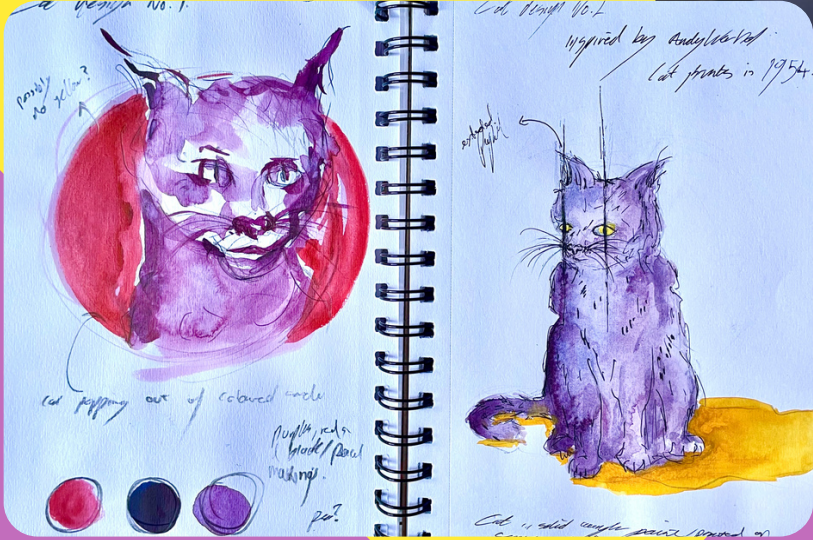 Cat design No. 1.
possibly
no yellow?
cat popping out of coloured circle
purples, reds
black/pencil
markings.
pen?
Cat design No.2
Inspired by Andy Warhol
Cat prints in 1954.
extended
Cat is solid purple paint